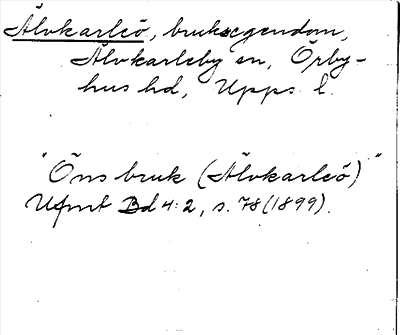 Älvkarleö, bruksegendom,
Älvkarleby sn, Örby-
hus hd, Upps l.
"Öns bruk (Älvkarleö)"
Ufmt Bd 4:2, s. 78 (1899).